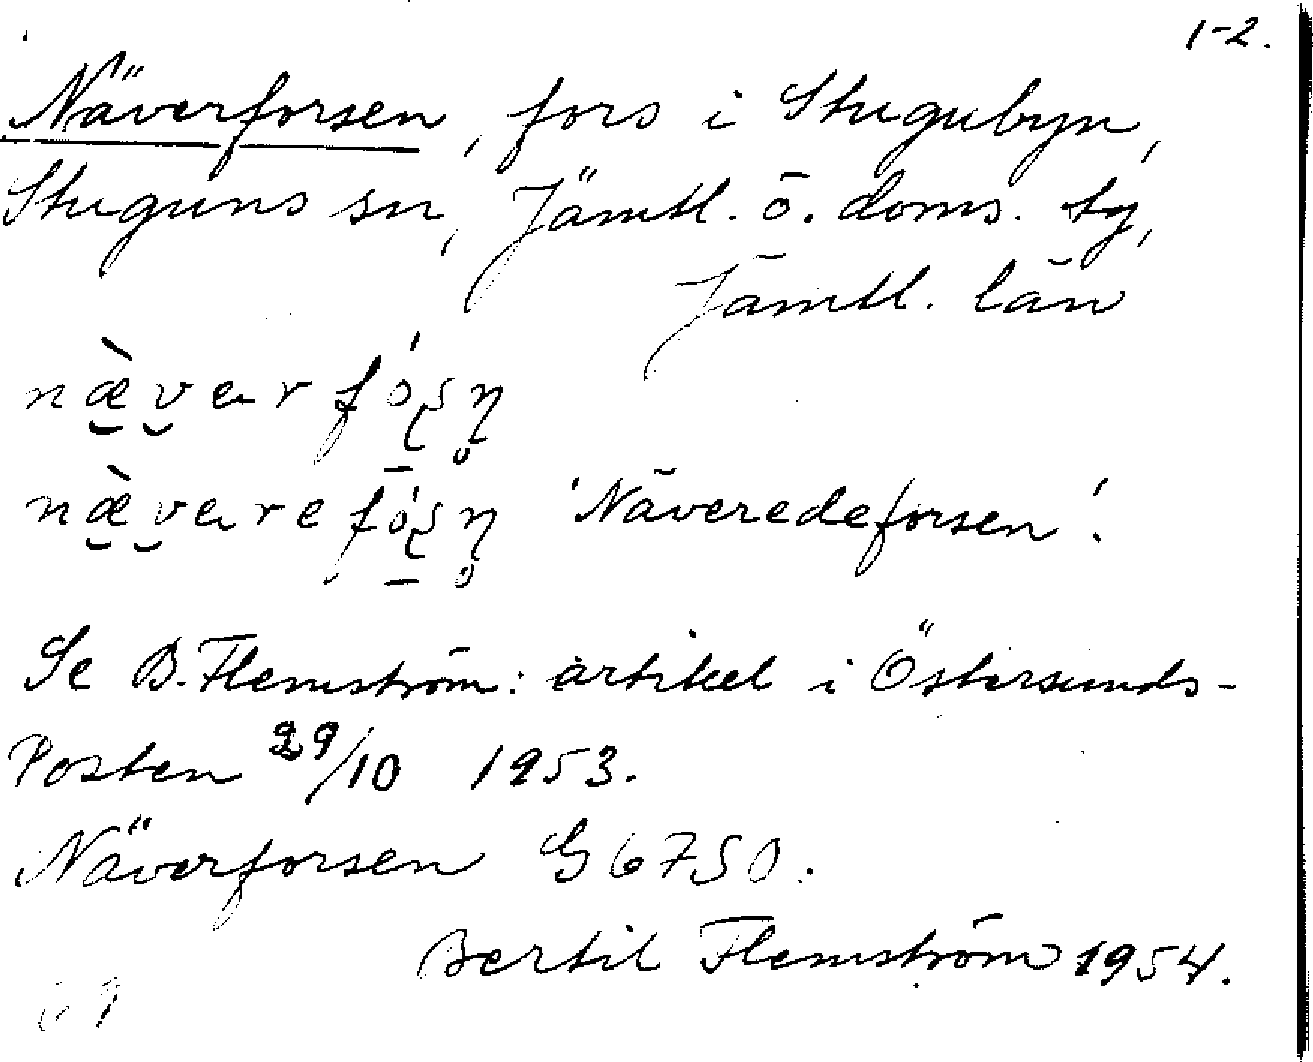 1-2.
Näverforsen, fors i Stugubyn,
Stuguns sn, Jämtl. ö. doms. tg,
Jämtl. län
næ̀var fóʂn̥
næ̀varefóʂn̥ 'Näveredeforsen'.
Se B. Flemström: artikel i Östersunds-
Posten 29/10 1953.
Näverforsen G6750.
Bertil Flemström 1954.